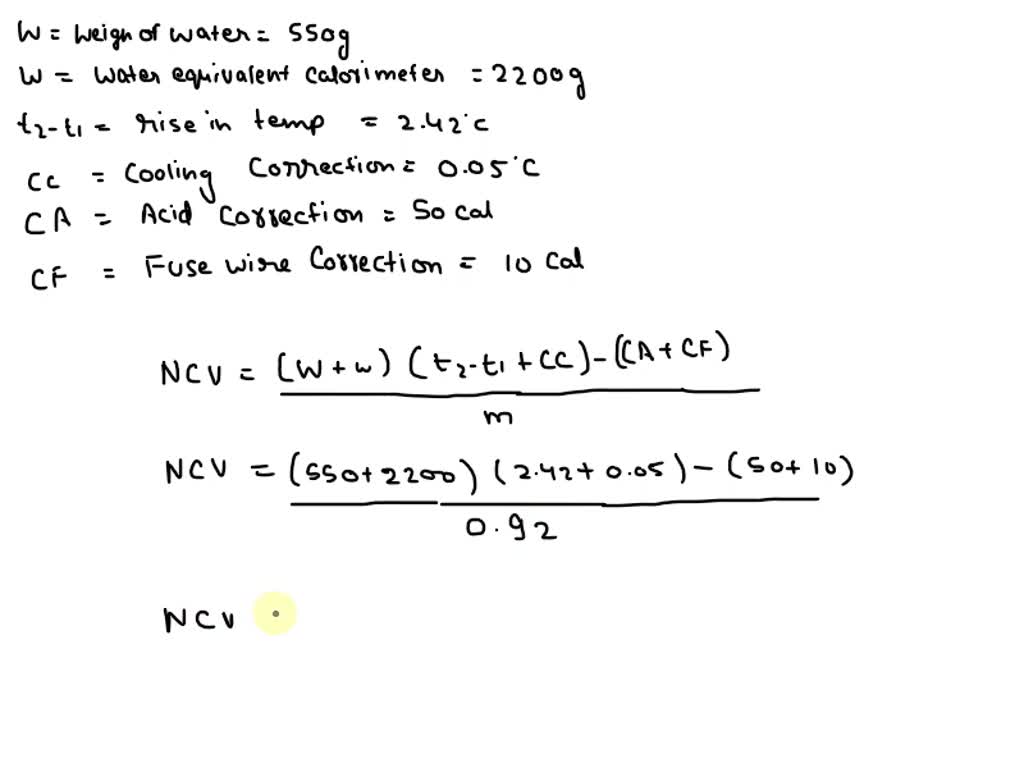 W = weign of water = 550g
w = water equivalent calorimeter = 2200g
t2-t1 = rise in temp = 2.42°c
CC = Cooling Correction = 0.05°C
CA = Acid correction = 50 cal
CF = Fuse wire Correction = 10 cal
NCV = (W + w) (t2-t1 + CC) - (CA + CF)
m
NCV = (550 + 2200) (2.42 + 0.05) - (50 + 10)
0.92
NCV